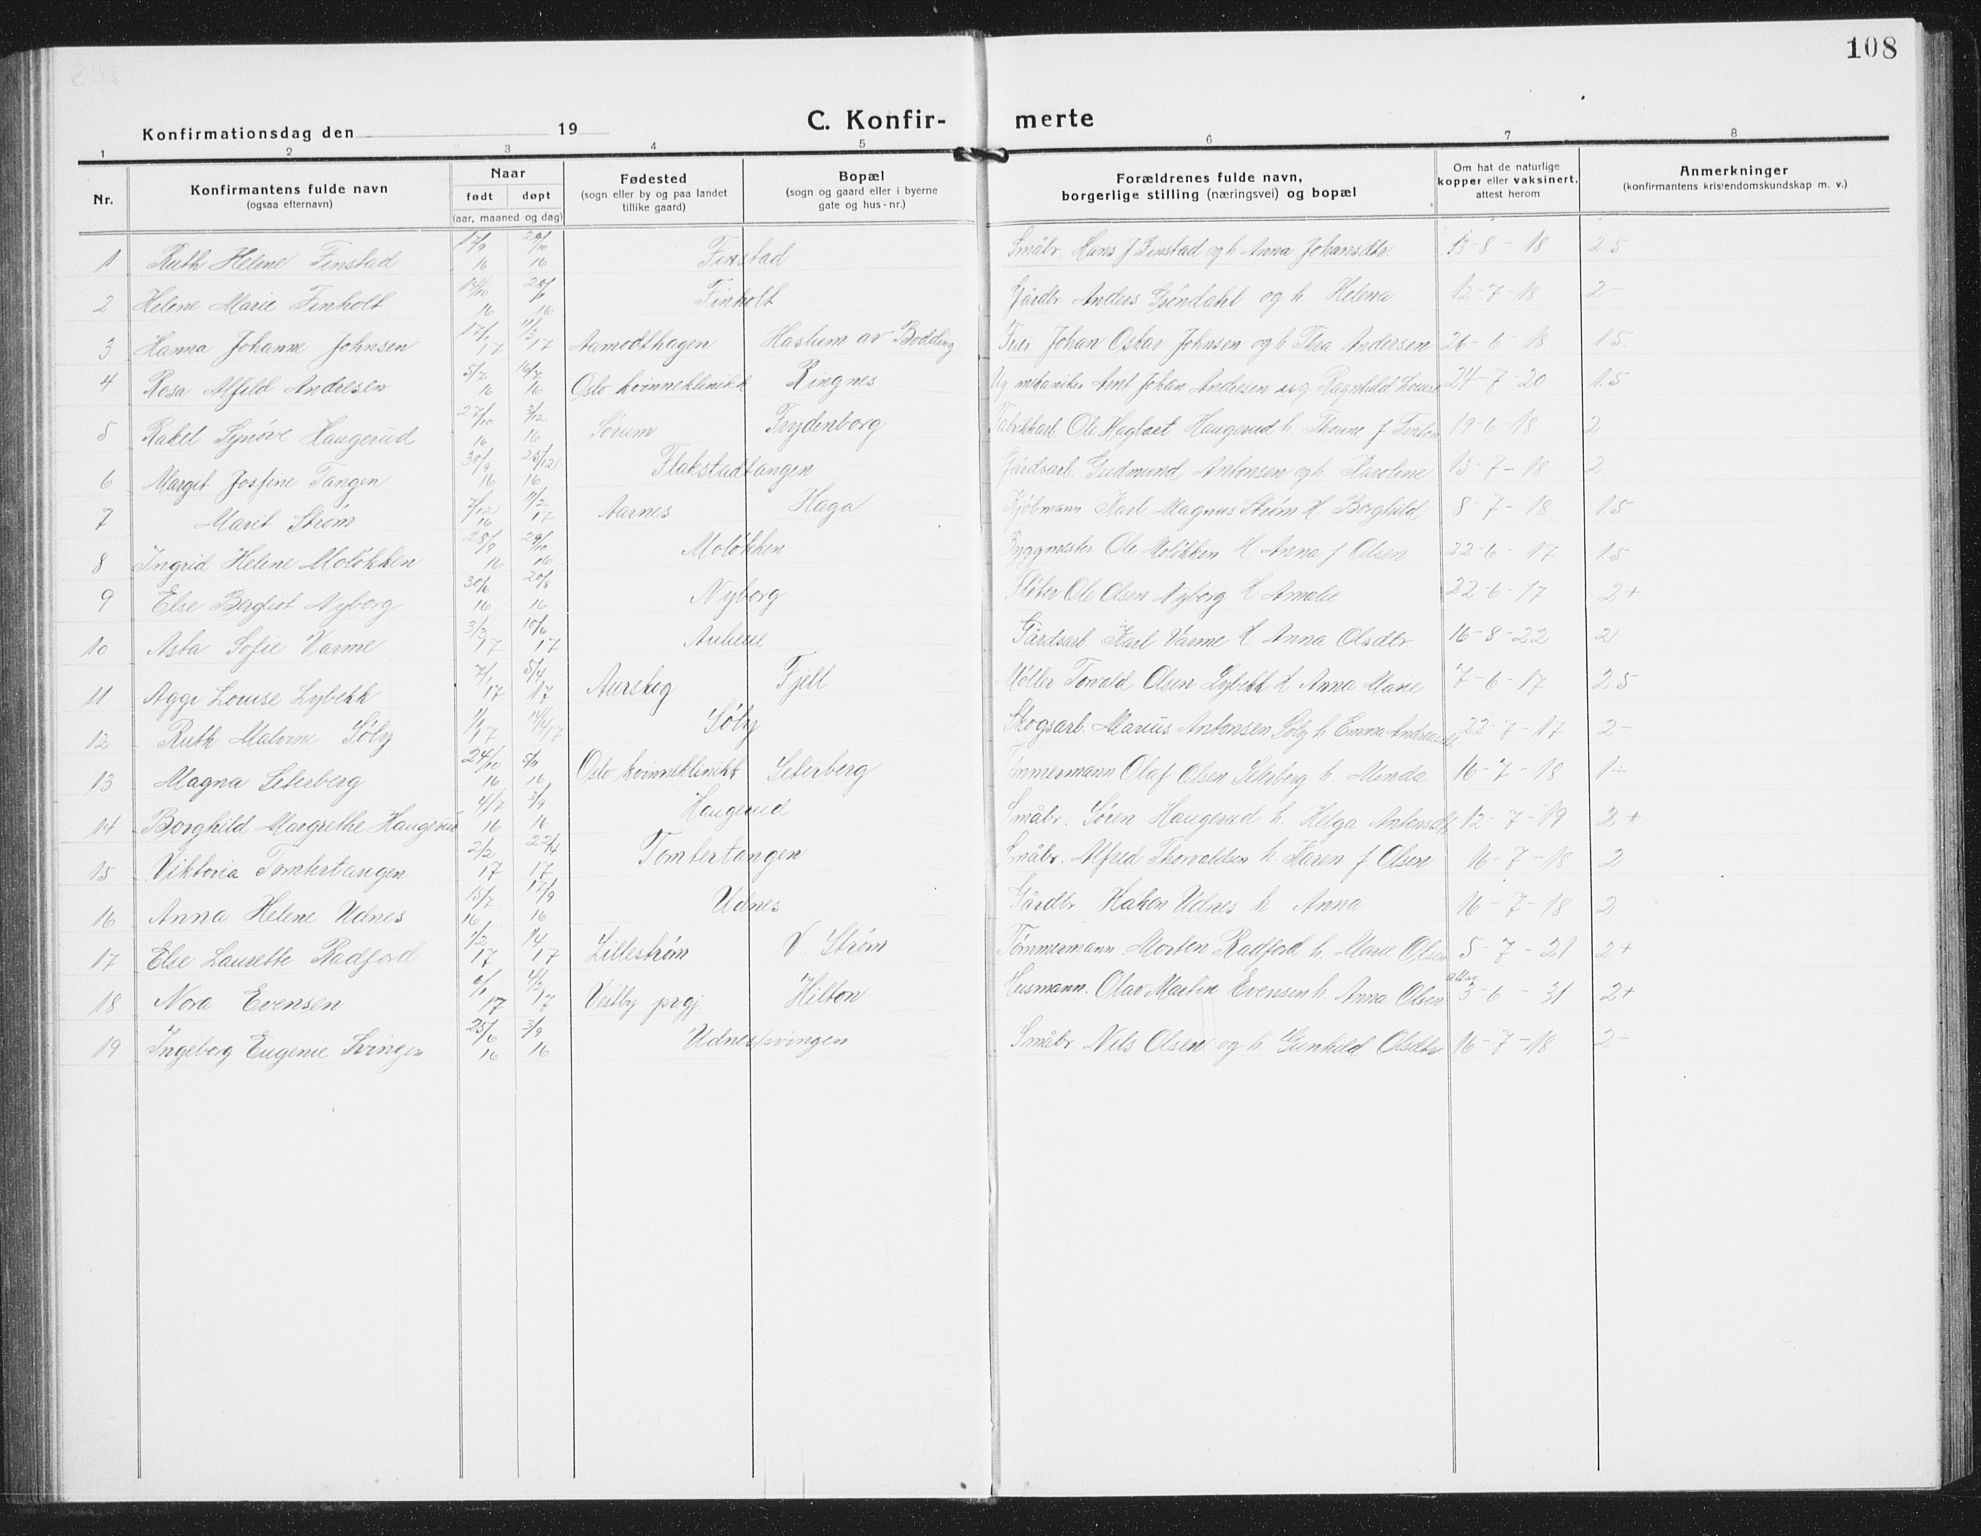 108
Konfirmationsdag den 19
C. Konfir- merte
1 2 3 4 5 6 7 8
Nr.
Konfirmantens fulde navn
(ogsaa efternavn)
Naar
født døpt
(aar, maaned og dag)
Fødested
(sogn eller by og paa landet
tillike gaard)
Bopæl
(sogn og gaard eller i byerne
gate og hus-nr.)
Forældrenes fulde navn,
borgerlige stilling (næringsvei) og bopæl
Om hat de naturlige
kopper eller vaksinert,
attest herom
Anmerkninger
(konfirmantens kristendomskundskap m. v.)
1 Ruth Helene Finstad 17/9 16 29/10 16 Finstad Småbr. Hans J Finstad og h Anna Johansdtr. 13-8-18 2.5
2 Helene Marie Finholt 14/10 16 16 Finholt Gårdbr Anders Gröndahl og h. Helena 12-7-18 2-
3 Hanna Johanne Johnsen 17 17 Aamodthagen Haslum av Bodding Johan Oskar Johnsen og h Thea Andersen 26-6-18 1.5
4 Rosa Alfild Andresen 5/7 16 16/7 16 Oslo kvinneklinikk Ringnes mekaniker Arnt Johan Andresen og Ragnhild Louise 24-7-20 1.5
5 Rakel Synöve Haugerud 27/10 16 3/12 16 Sörum Frydenborg Fabrikkarb. Ole Haugerud h. 19-6-18 2
6 Margit Josfine Tangen 30/9 16 25/12 16 Flakstadtangen Gårdsarb. Gudmund Antonsen og h Karolene 13-7-18 2
7 Marit Strøm 7/12 16 11/2 17 Aarnes Haga Kjøbmann Karl Magnus Strøm H. Borghild 8-7-18 1.5
8 Ingrid Helene Molökken 28/8 16 29/10 16 Molökken Byggmester Ole Molökken H Anna f Olsen 22-6-17 1.5
9 Else Bergliot Nyborg 30/6 16 20/8 16 Nyborg Fløter Ole Olsen Nyborg H Amalie 22-6-17 2+
10 Asta Sofie Varme 3/3 17 10/6 17 Gårdsarb Karl Varme H Anna Olsdtr 16-8-22 2
11 Aggi Louise Lybekk 7/1 17 5/4 17 Aurskog Fjell Møller Torvald Olsen Lybekk H Anna Marie 7-6-17 2.5
12 Ruth Malvine Sölvy 1/1 17 17 Sölvy Skogsarb. Marius Antonsen Sölvy h Emma 22-7-17 2-
13 Magna Seterberg 24/10 16 16 Oslo kvinneklinikk Seterberg Tømmermann Olaf Olsen Seterberg h. Minda 16-7-18 1÷
14 Borghild Margrethe Haugerud 4/7 16 3/9 16 Haugerud Småbr. Sören Haugerud h. Helga 12-7-19 2+
15 Viktoria Tomtertangen 2/2 17 22/4 17 Tomtertangen Småbr. Alfred Thorvaldsen h. Karen f. Olsen 16-7-18 2
16 Anna Helene Udnes 15/7 16 17/9 16 Udnes Gårdbr. Hakon Udnes h Anna 16-7-18 2
17 Else Laurette Radford 1/2 17 1/4 17 Lillestrøm V. Strøm Tömmermann Morten Radford h. Marie Olsen 5-7-21 2+
18 Nora Evensen 17 17 Vestby prgj. Hilton Husmann. Olav Martin Evensen h. Anna Olsen 3-6-31 2+
19 Ingeborg Eugenie Svingen 25/6 16 3/9 16 Udnes/svingen Småbr. Nils Olsen og h Gunhild Olsdtr 16-7-18 2-